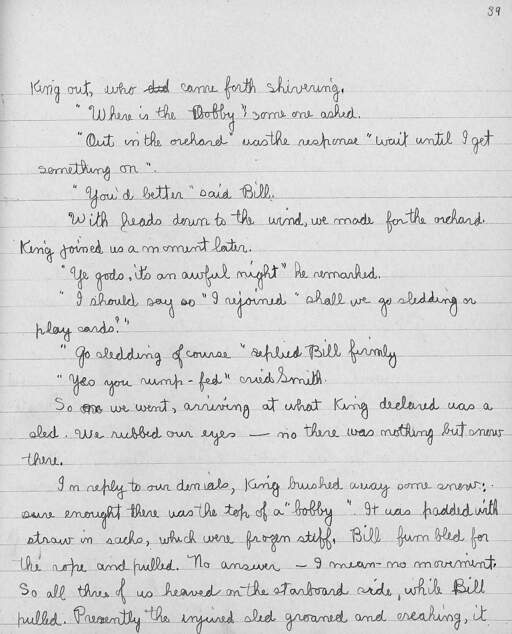 39
King out, who did came forth shivering.
"Where is the Bobby"? some one asked.
"Out in the orchard" was the response "wait until I get
something on".
"You'd better" said Bill.
With heads down to the wind, we made for the orchard.
King joined us a moment later.
"Ye gods, it's an awful night" he remarked.
"I should say so" I rejoined "shall we go sledding or
play cards?"
"Go sledding of course" replied Bill firmly
"Yes you rump-fed" cried Smith.
So on we went, arriving at what King declared was a
sled. We rubbed our eyes — no there was nothing but snow
there.
In reply to our denials, King brushed away some snow;
sure enought there was the top of a "bobby". It was padded with
straw in sacks, which were frozen stiff. Bill fumbled for
the rope and pulled. No answer — I mean no movement.
So all three of us heaved on the starboard side, while Bill
pulled. Presently the injured sled groaned and creaking, it